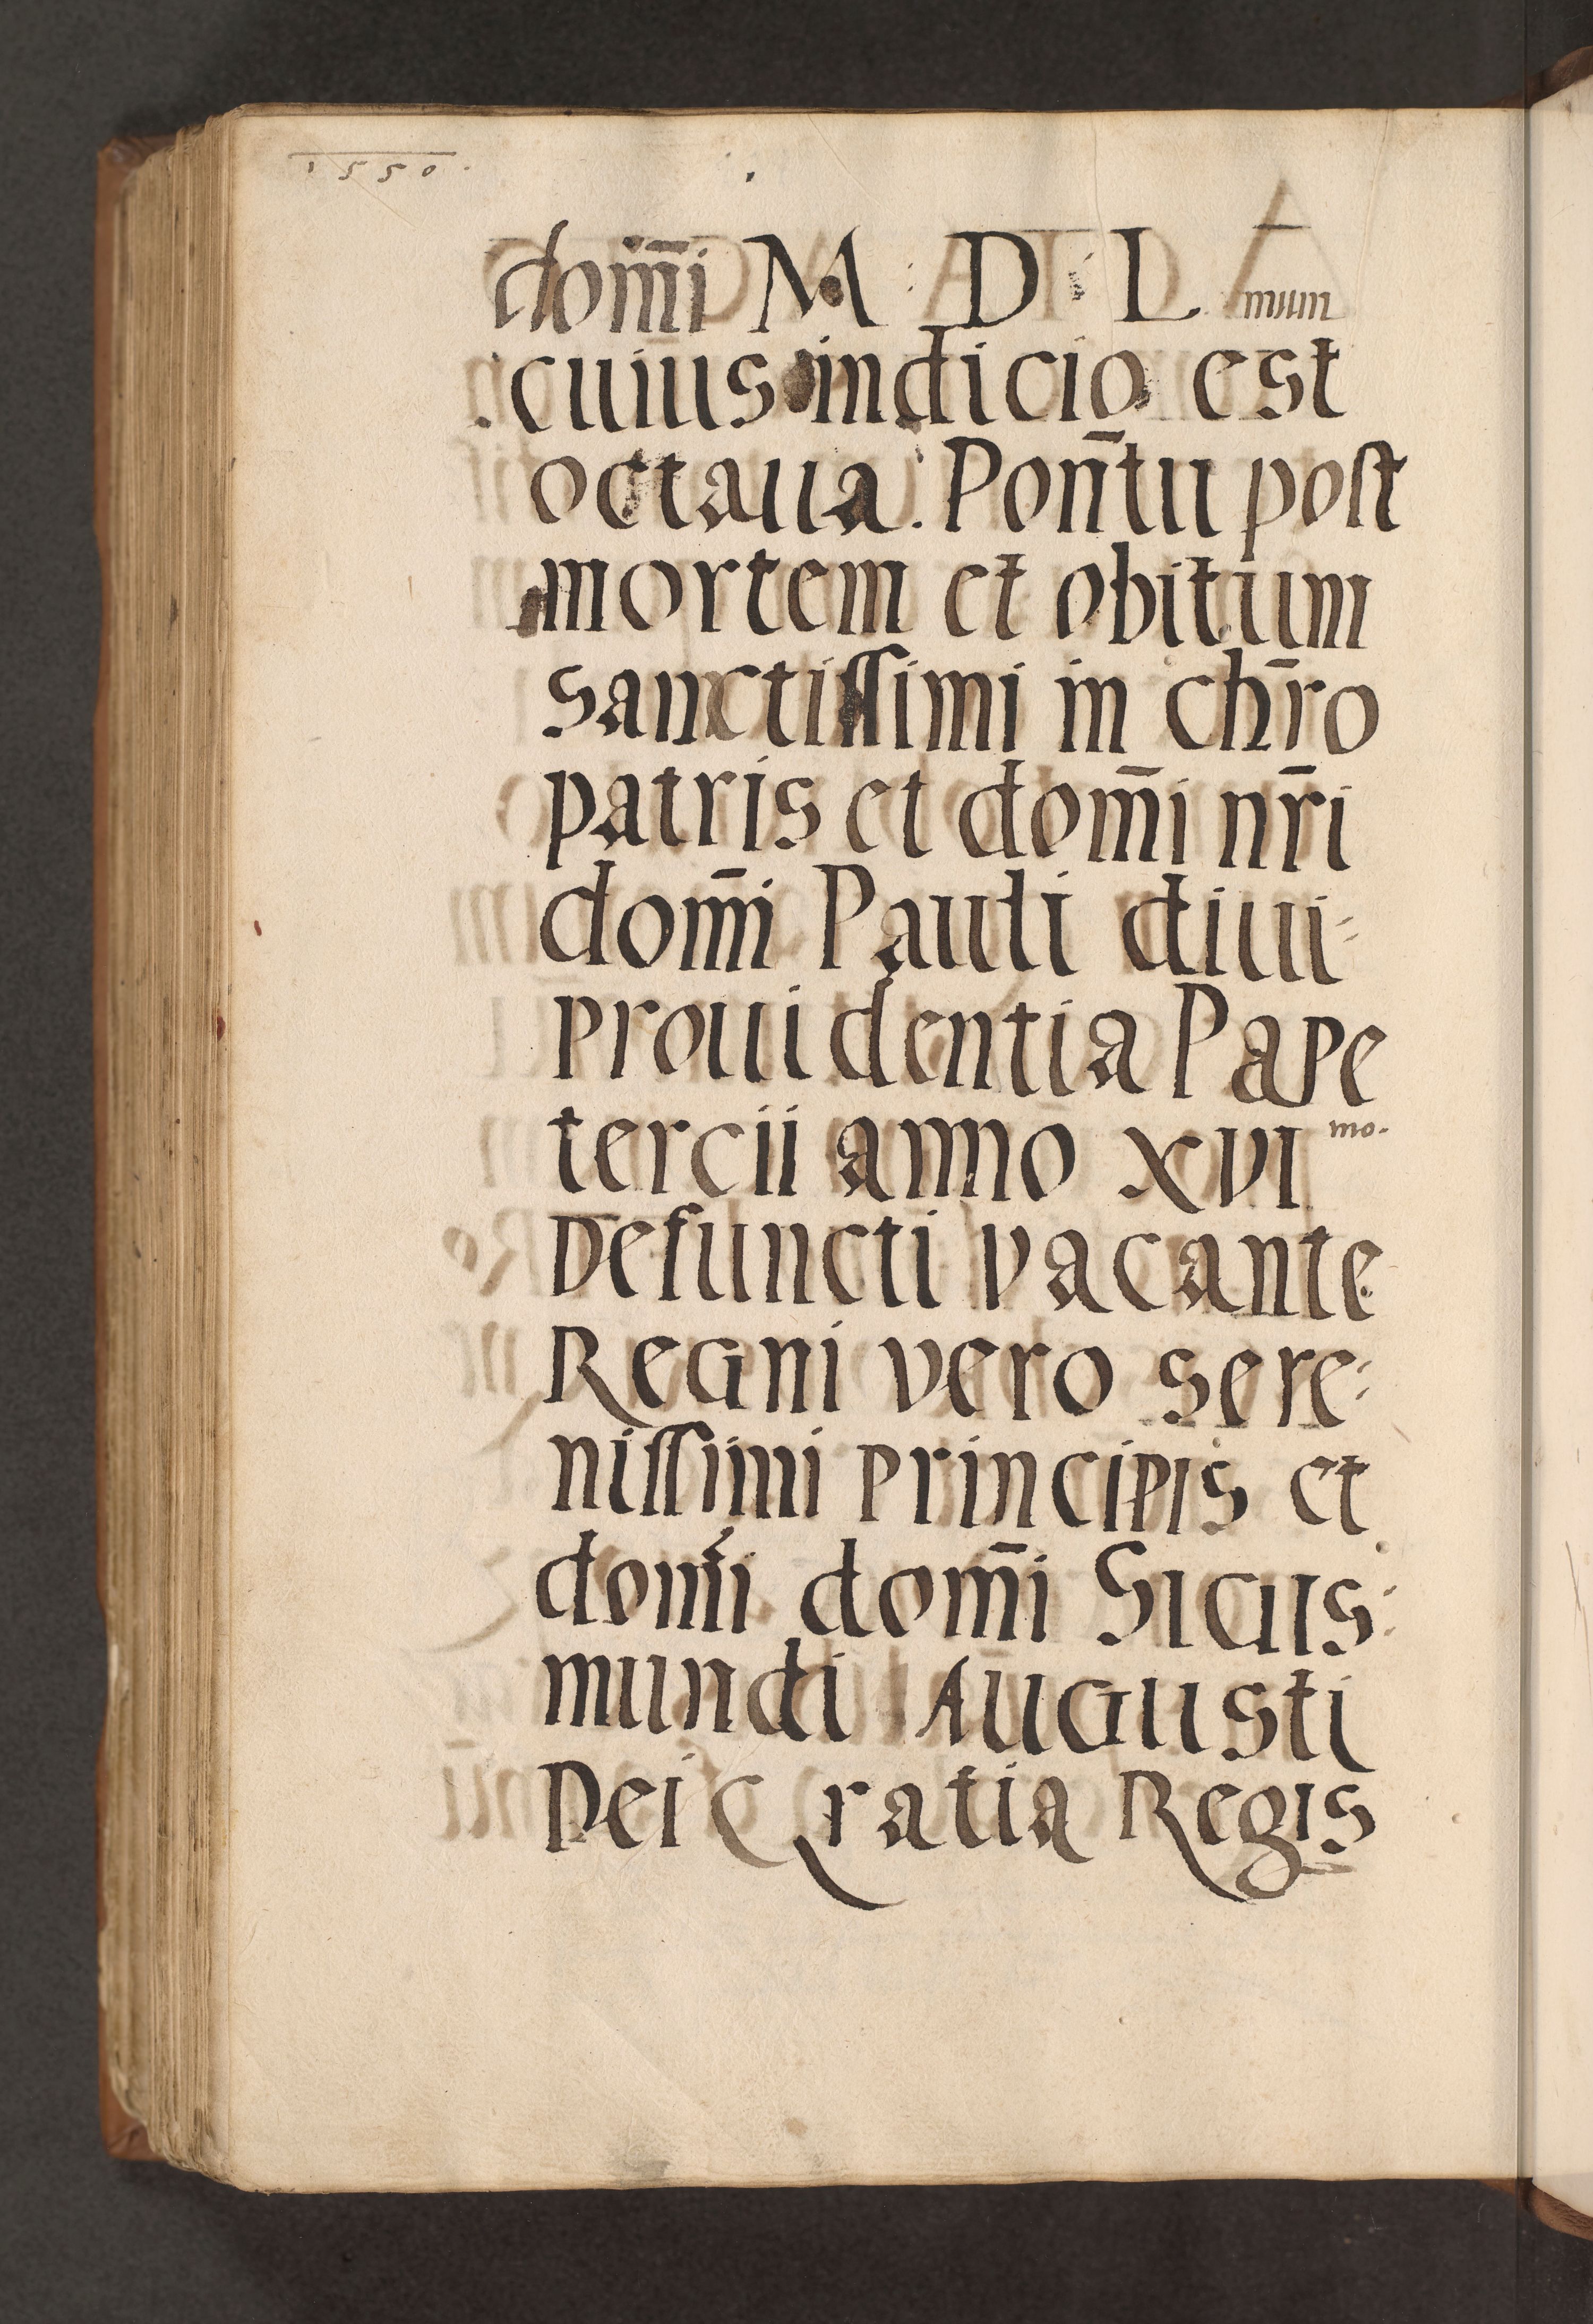 1550.
dom̄i M. D: L. mum
.cuius indicio est
octaua. Pon̄tu post
mortem et obitum
sanctissimi in chr̄o
patris et dom̄i nr̄i
dom̄i Pauli diui-
prouidentia Pape
tercii anno XVI mo.
Defuncti vacante
Regni vero sere:
nissimi principis et
dom̄i dom̄i Sigis:
mundi Augusti
Dei Gratia Regis